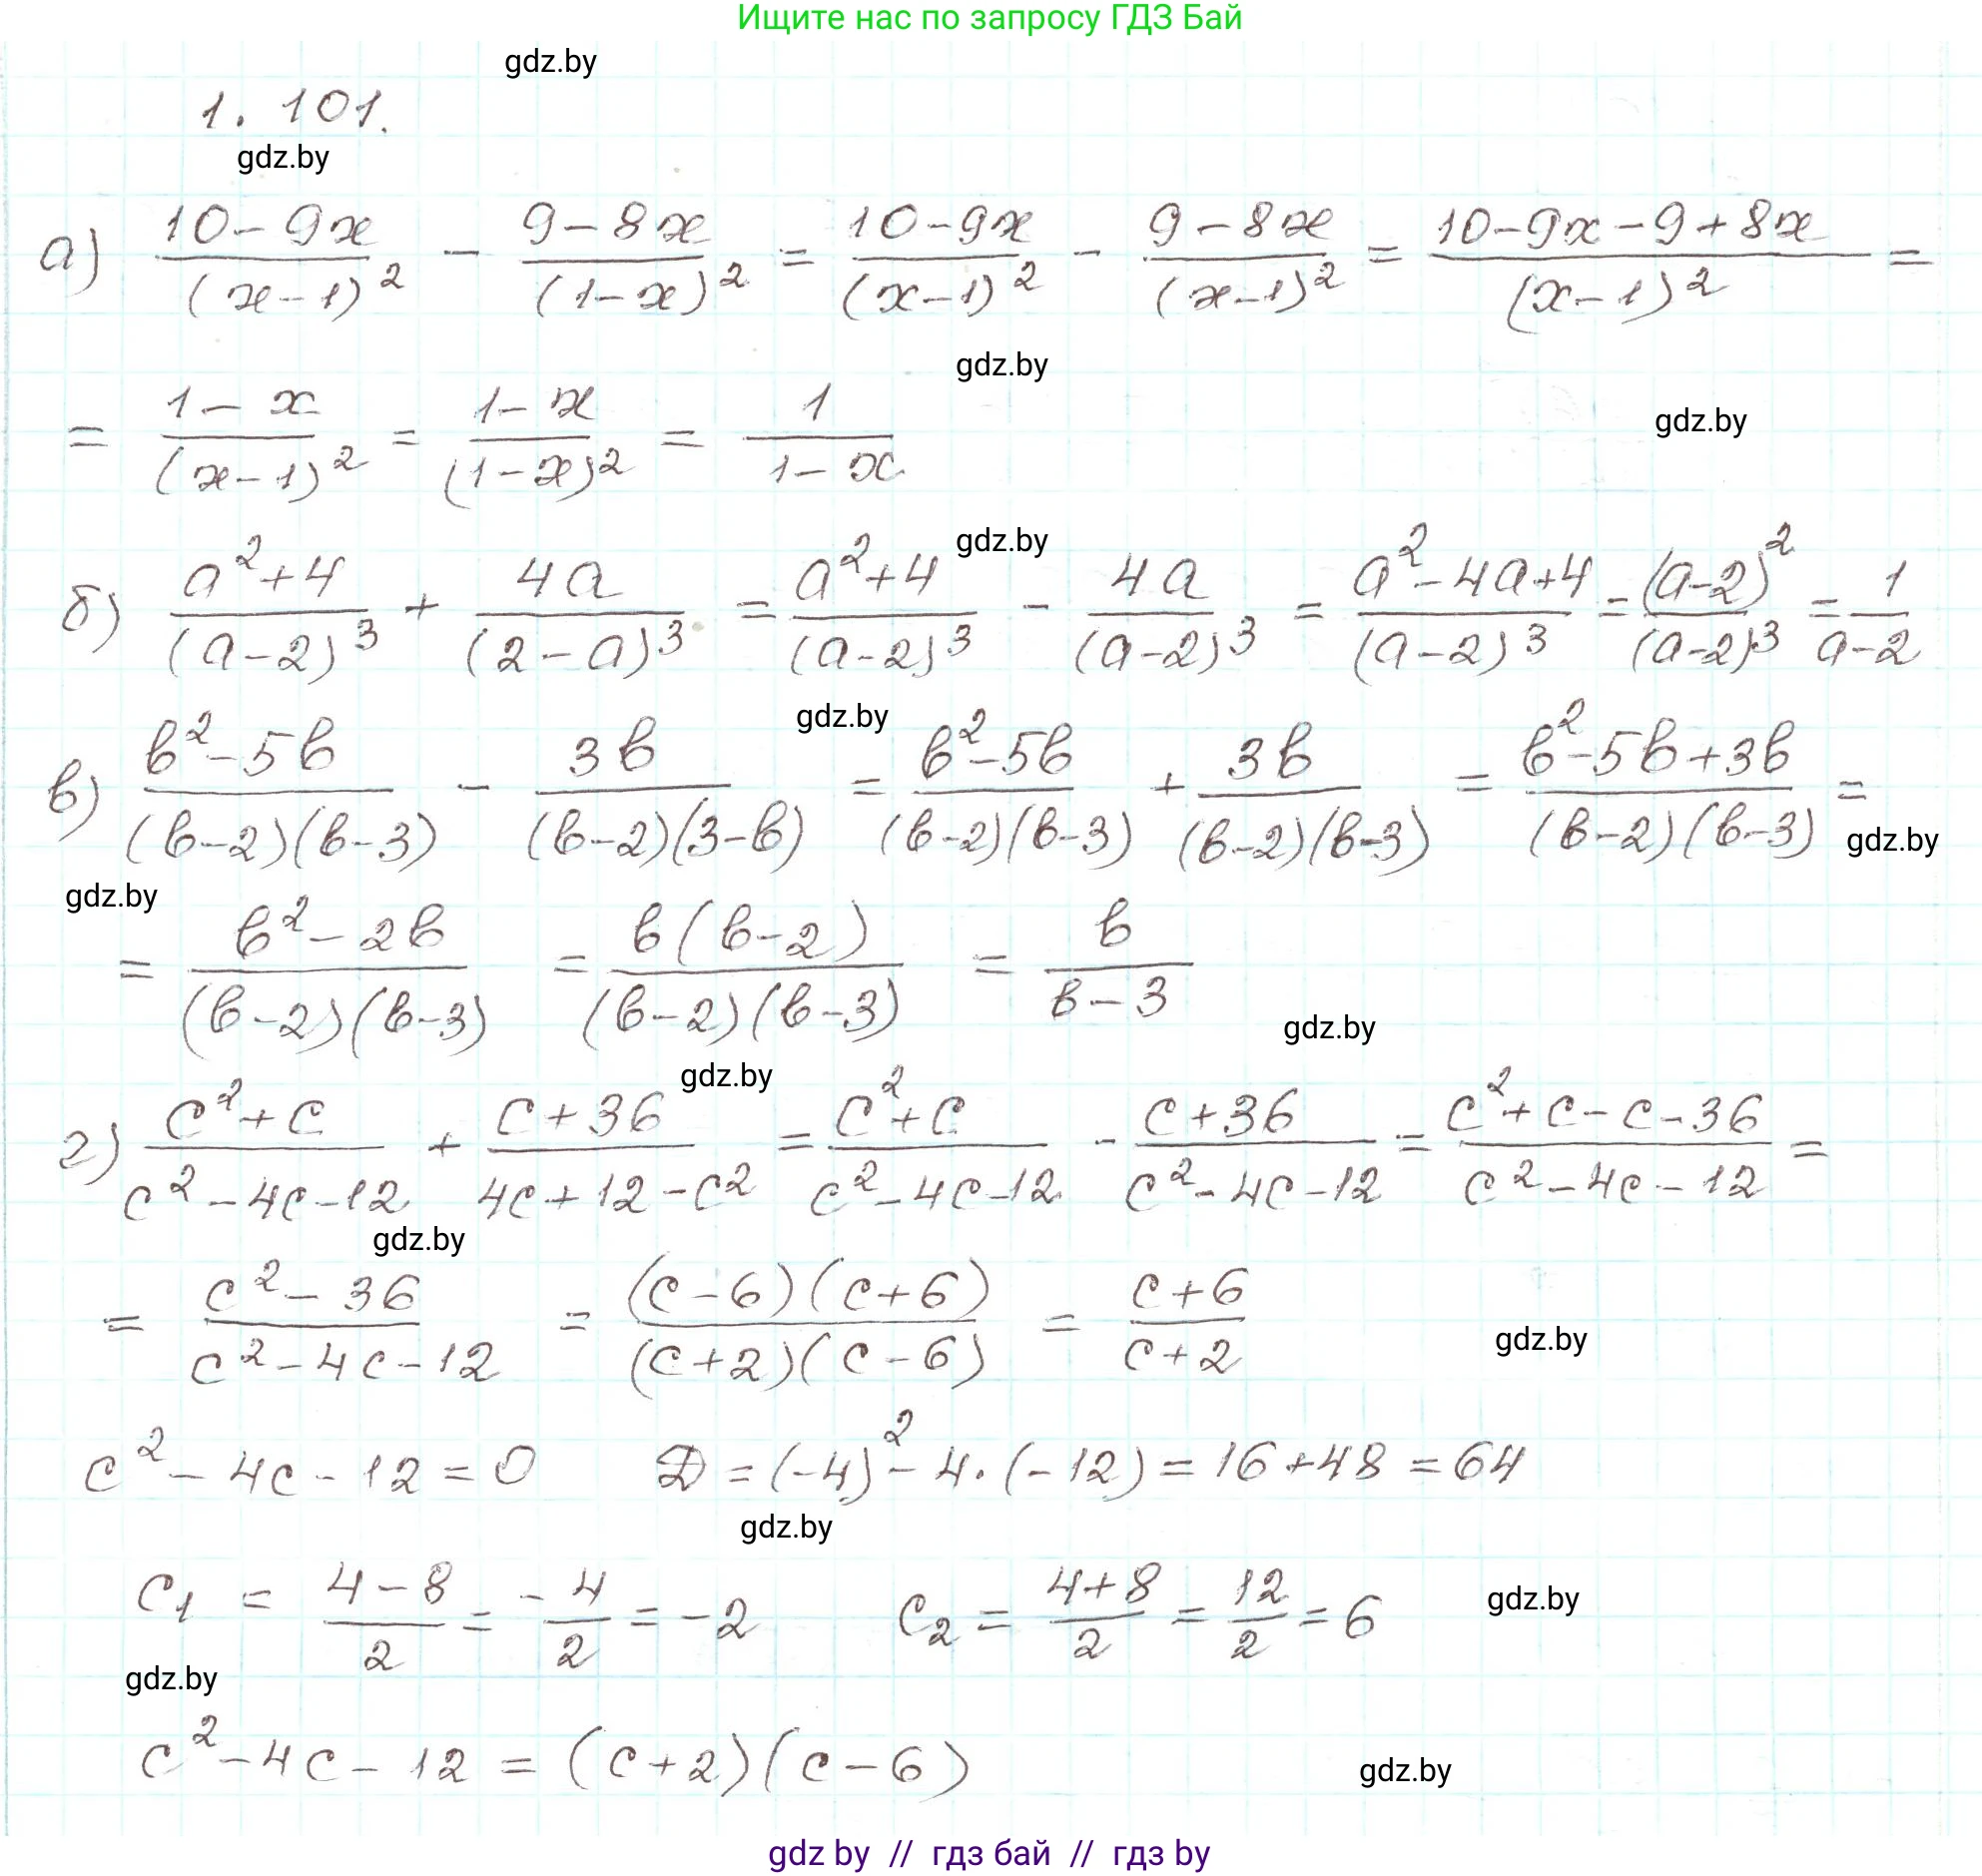 Ищите нас по запросу ГДЗ Бай
gdz.by
1. 101.
gdz.by
а) (10-9x)/(x-1)² - (9-8x)/(1-x)² = (10-9x)/(x-1)² - (9-8x)/(x-1)² = (10-9x-9+8x)/(x-1)² =
gdz.by
= (1-x)/(x-1)² = (1-x)/(1-x)² = 1/(1-x)
gdz.by
gdz.by
б) (a²+4)/(a-2)³ + 4a/(2-a)³ = (a²+4)/(a-2)³ - 4a/(a-2)³ = (a²-4a+4)/(a-2)³ = (a-2)²/(a-2)³ = 1/(a-2)
gdz.by
в) (b²-5b)/((b-2)(b-3)) - 3b/((b-2)(3-b)) = (b²-5b)/((b-2)(b-3)) + 3b/((b-2)(b-3)) = (b²-5b+3b)/((b-2)(b-3)) =
gdz.by
gdz.by
= (b²-2b)/((b-2)(b-3)) = b(b-2)/((b-2)(b-3)) = b/(b-3)
gdz.by
gdz.by
г) (c²+c)/(c²-4c-12) + (c+36)/(4c+12-c²) = (c²+c)/(c²-4c-12) - (c+36)/(c²-4c-12) = (c²+c-c-36)/(c²-4c-12) =
gdz.by
= (c²-36)/(c²-4c-12) = (c-6)(c+6)/((c+2)(c-6)) = (c+6)/(c+2)
gdz.by
c²-4c-12=0 D=(-4)²-4·(-12)=16+48=64
gdz.by
c₁ = (4-8)/2 = -4/2 = -2 c₂ = (4+8)/2 = 12/2 = 6
gdz.by
gdz.by
c²-4c-12 = (c+2)(c-6)
gdz.by
gdz by // гдз бай // гдз by